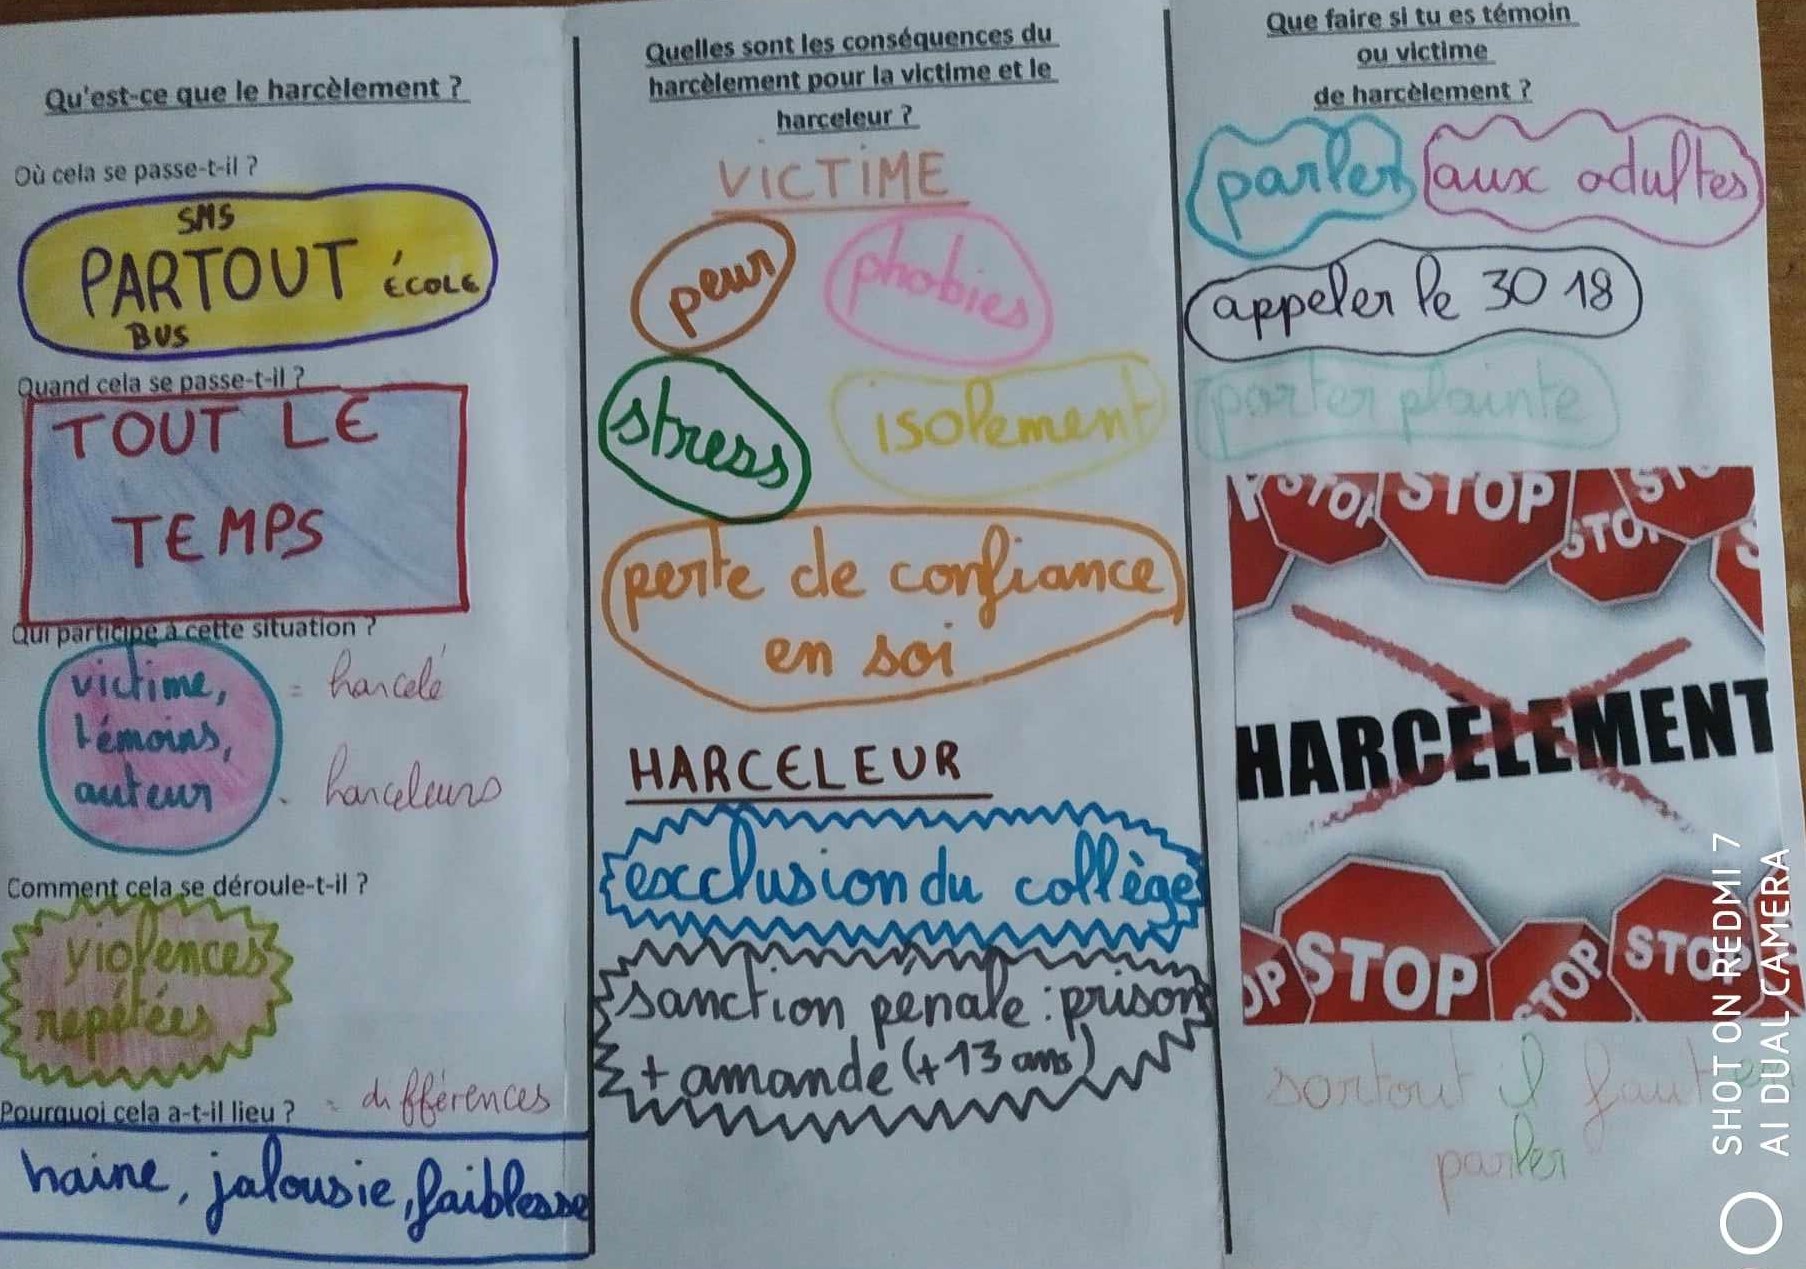 Qu'est-ce que le harcèlement ?
Où cela se passe-t-il ?
SMS
PARTOUT
ÉCOLE
BUS
Quand cela se passe-t-il ?
TOUT LE
TEMPS
Qui participe à cette situation ?
victime, = harcelé
témoins,
auteur - harceleurs
Comment cela se déroule-t-il ?
violences
repétées
Pourquoi cela a-t-il lieu ? = différences
haine, jalousie, faiblesse
Quelles sont les conséquences du
harcèlement pour la victime et le
harceleur ?
VICTIME
peur
phobies
stress
isolement
perte de confiance
en soi
HARCELEUR
exclusion du collège
sanction penale : prison
+ amande (+ 13 ans)
Que faire si tu es témoin
ou victime
de harcèlement ?
parler aux adultes
appeler le 30 18
porter plainte
STOP
STOP
STOP
HARCÈLEMENT
STOP
STOP
STOP
sortout il faut en
parler
SHOT ON REDMI 7
AI DUAL CAMERA